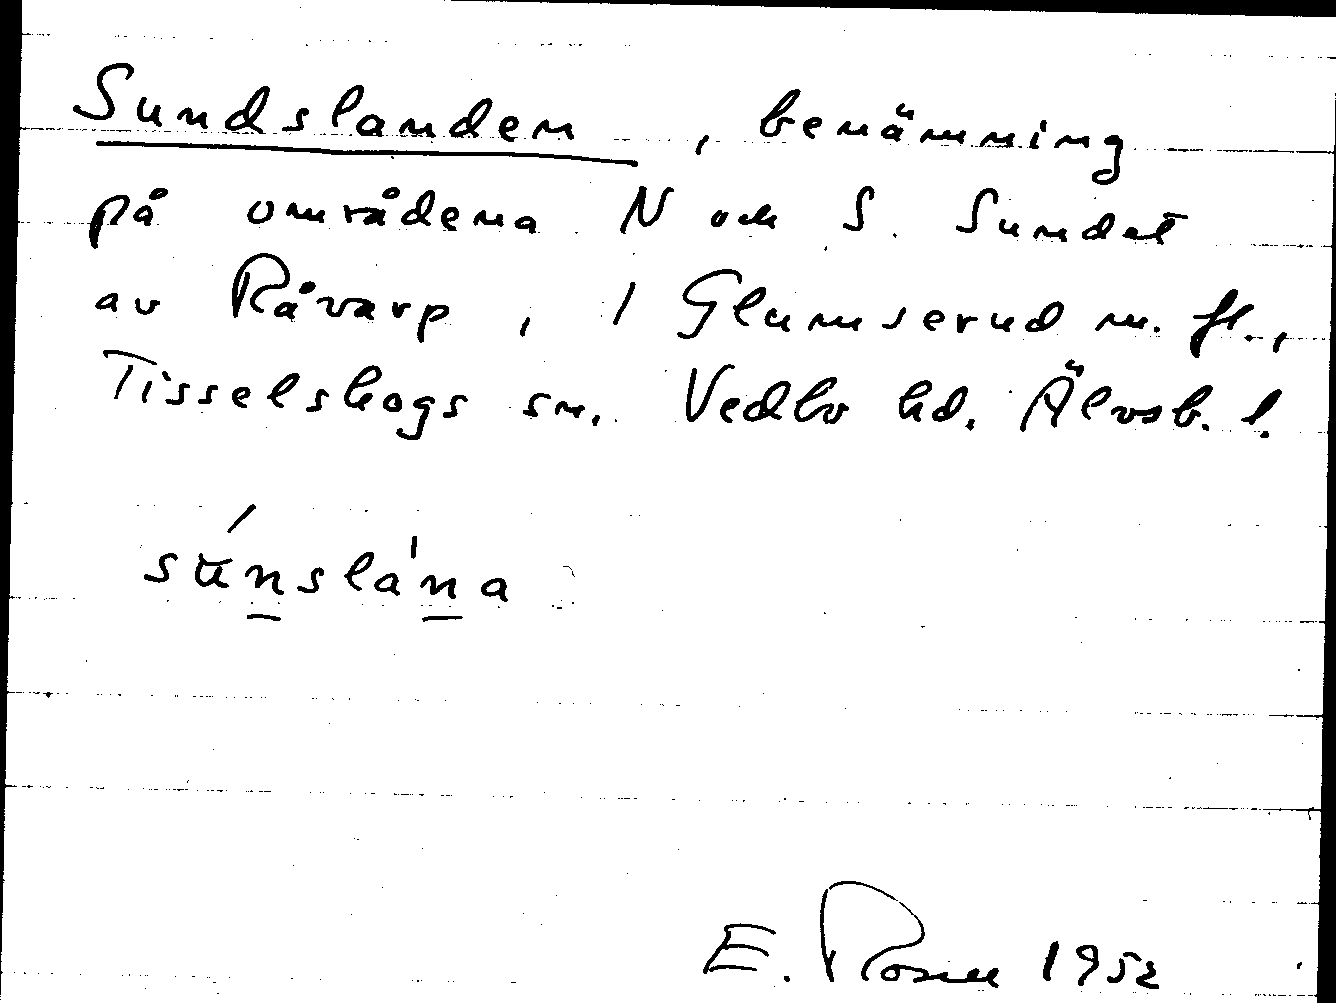 Sundslanden, benämning
på områdena N och S. Sundet
av Råvarp, 1 Glumserud m. fl.,
Tisselskogs sn. Vedbo hd. Älvsb. l.
súnsla'na
E. Rosell 1952